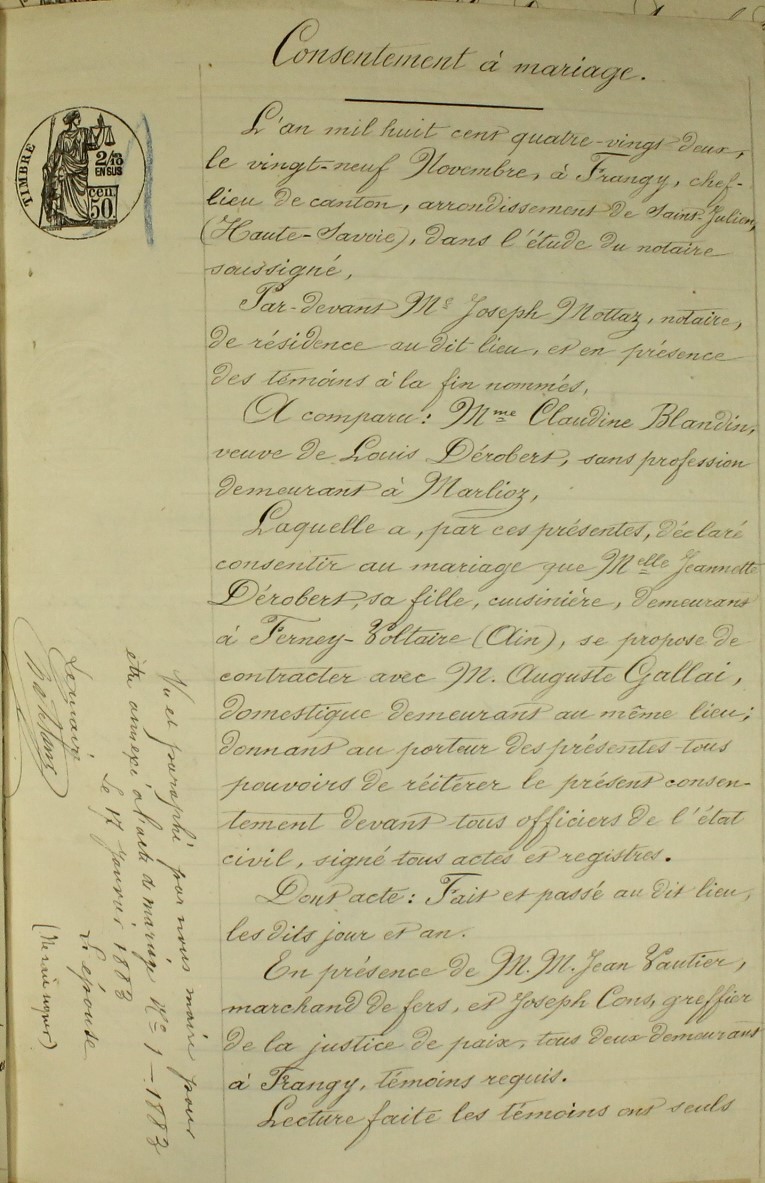 Consentement à mariage.
TIMBRE
2/10
EN SUS
cen
50
L'an mil huit cent quatre-vingt deux,
le vingt-neuf Novembre, à Frangy, chef-
lieu de canton, arrondissement de Saint-Julien,
(Haute-Savoie), dans l'étude du notaire
soussigné,
Par-devant Me Joseph Mottaz, notaire,
de résidence au dit lieu, et en présence
des témoins à la fin nommés,
A comparu : Mme Claudine Blandin,
veuve de Louis Dérobert, sans profession
demeurant à Marlioz,
Laquelle a, par ces présentes, déclaré
consentir au mariage que Melle Jeannette
Dérobert, sa fille, cuisinière, demeurant
à Ferney-Voltaire (Ain), se propose de
contracter avec M. Auguste Gallai,
domestique demeurant au même lieu ;
donnant au porteur des présentes tous
pouvoirs de réitérer le présent consen-
tement devant tous officiers de l'état
civil, signé tous actes et registres.
Dont acte : Fait et passé au dit lieu,
les dits jour et an.
En présence de M.M. Jean Vautier,
marchand de fers, et Joseph Cons, greffier
de la justice de paix, tous deux demeurant
à Frangy, témoins requis.
Lecture faite les témoins ont seuls
Vu et paraphé par nous maire pour
être annexé à l'acte de mariage No 1 - 1883
Le 17 Janvier 1883
Le maire
L'épouse